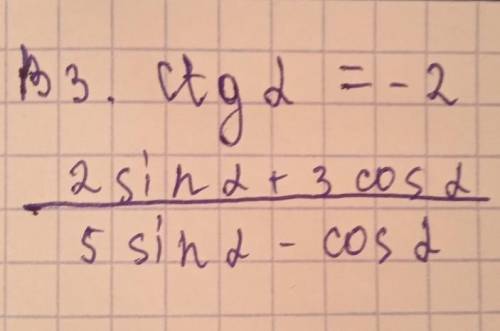 В3. ctg α = -2
2 sin α + 3 cos α
5 sin α - cos α